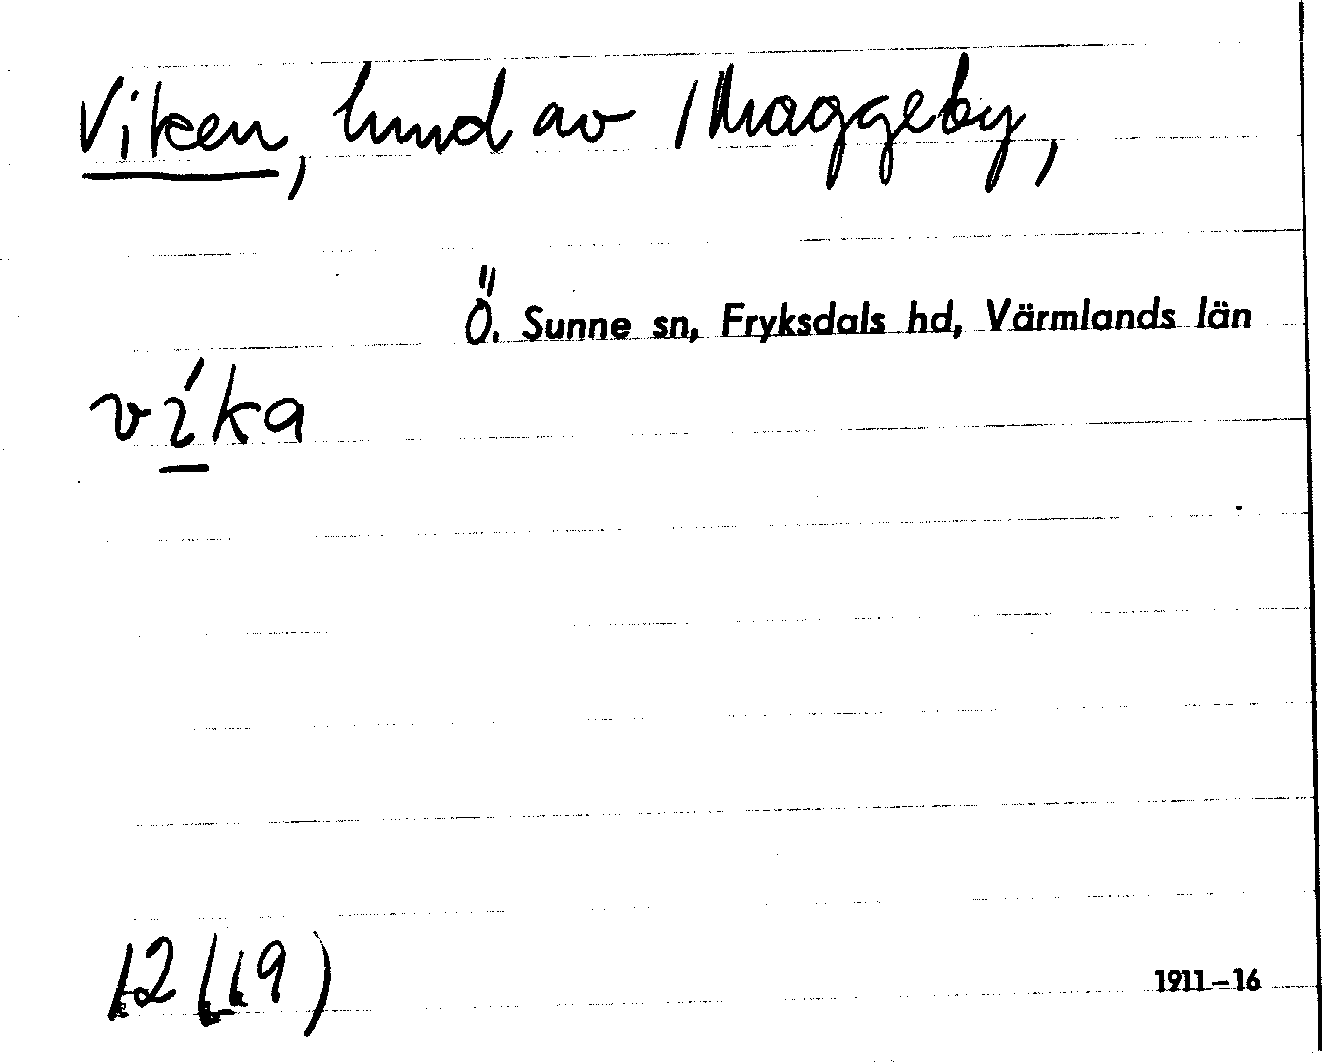 Viken, hmd av 1 Maggeby,
Ö. Sunne sn, Fryksdals hd, Värmlands län
víka
12 (19)
1911–16